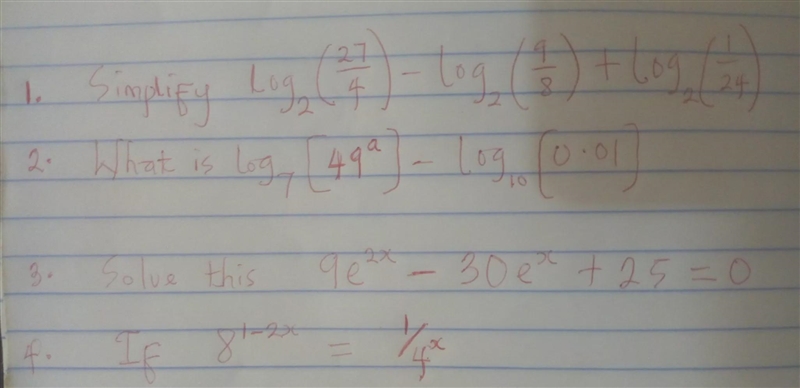 1. Simplify log₂(27/4) - log₂(9/8) + log₂(1/24)
2. What is log₇[49ᵃ] - log₁₀[0.01]
3. Solve this 9e²ˣ - 30eˣ + 25 = 0
4. If 8¹⁻²ˣ = 1/4ˣ